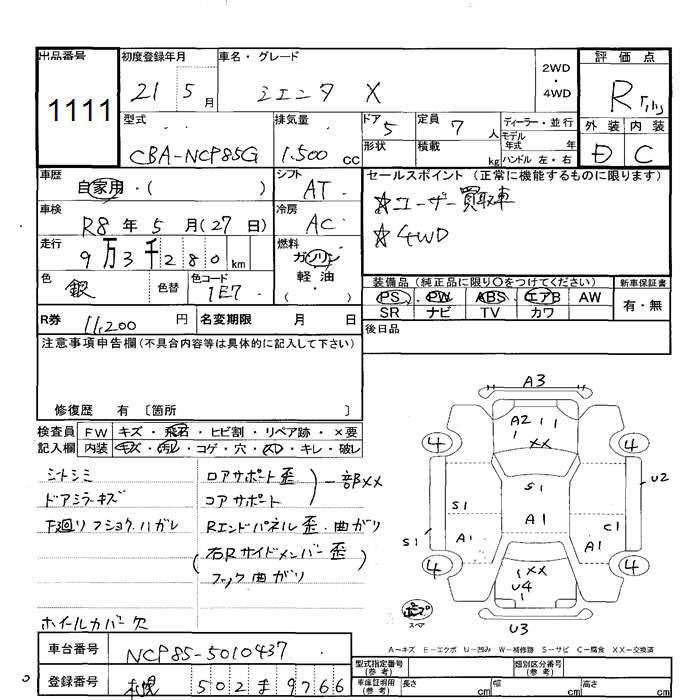 出品番号 初度登録年月 車名・グレード 2WD・4WD 評価点
1111 21 5月 シエンタ X R
型式 排気量 ドア 5 定員 7人 ディーラー・並行 外装 内装
CBA-NCP85G 1,500cc 形状 積載 kg モデル年式 年 D C
ハンドル 左・右
車歴 自家用・( ) シフト AT セールスポイント (正常に機能するものに限ります)
車検 R8年5月(27日) 冷房 AC ☆ユーザー買取車
走行 9万3千280km 燃料 ガソリン・軽油・( ) ☆4WD
色 銀 色替 色コード 1E7
装備品 (純正品に限り○をつけてください) 新車保証書
PS PW ABS エアB AW 有・無
SR ナビ TV カワ
R券 11,200円 名変期限 月 日 後日品
注意事項申告欄(不具合内容等は具体的に記入して下さい)
修復歴 有 〔箇所 〕
検査員記入欄 FW キズ・飛石・ヒビ割・リペア跡・×要
内装 キズ・汚レ・コゲ・穴・スレ・キレ・破レ
シートシミ
ドアミラーキズ
下廻りフショク.ハガレ
ホイールカバー欠
ロアサポート歪
コアサポート
一部××
Rエンドパネル歪.曲がり
(右Rサイドメンバー歪
フック曲がり)
A3
A2
××
4 4
S1
U2
S1
A1
C1
S1
A1
A1
4 4
××
U4
スペア
U3
A-キズ E-エクボ U-凹み W-補修跡 S-サビ C-腐食 XX-交換済
車台番号 NCP85-5010437
登録番号 札幌 502 ま 9766
型式指定番号(参考) 類別区分番号(参考)
車庫証明用(参考) 長さ cm 幅 cm 高さ cm